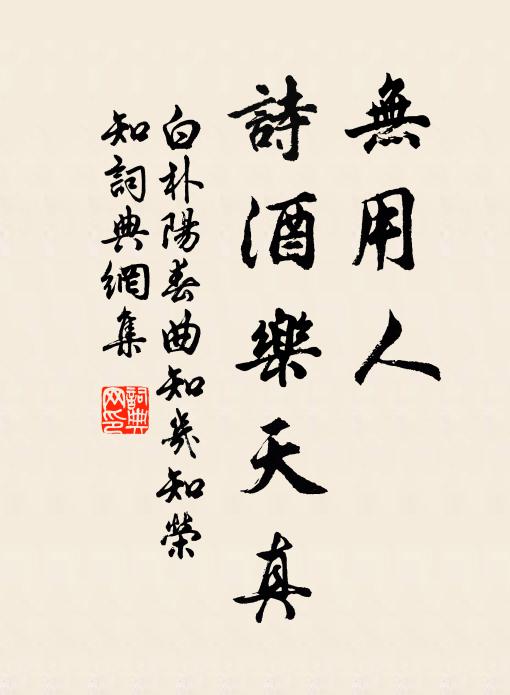 無用人
詩酒樂天真
白朴陽春曲知幾知榮
知詞典網集
詞典網印